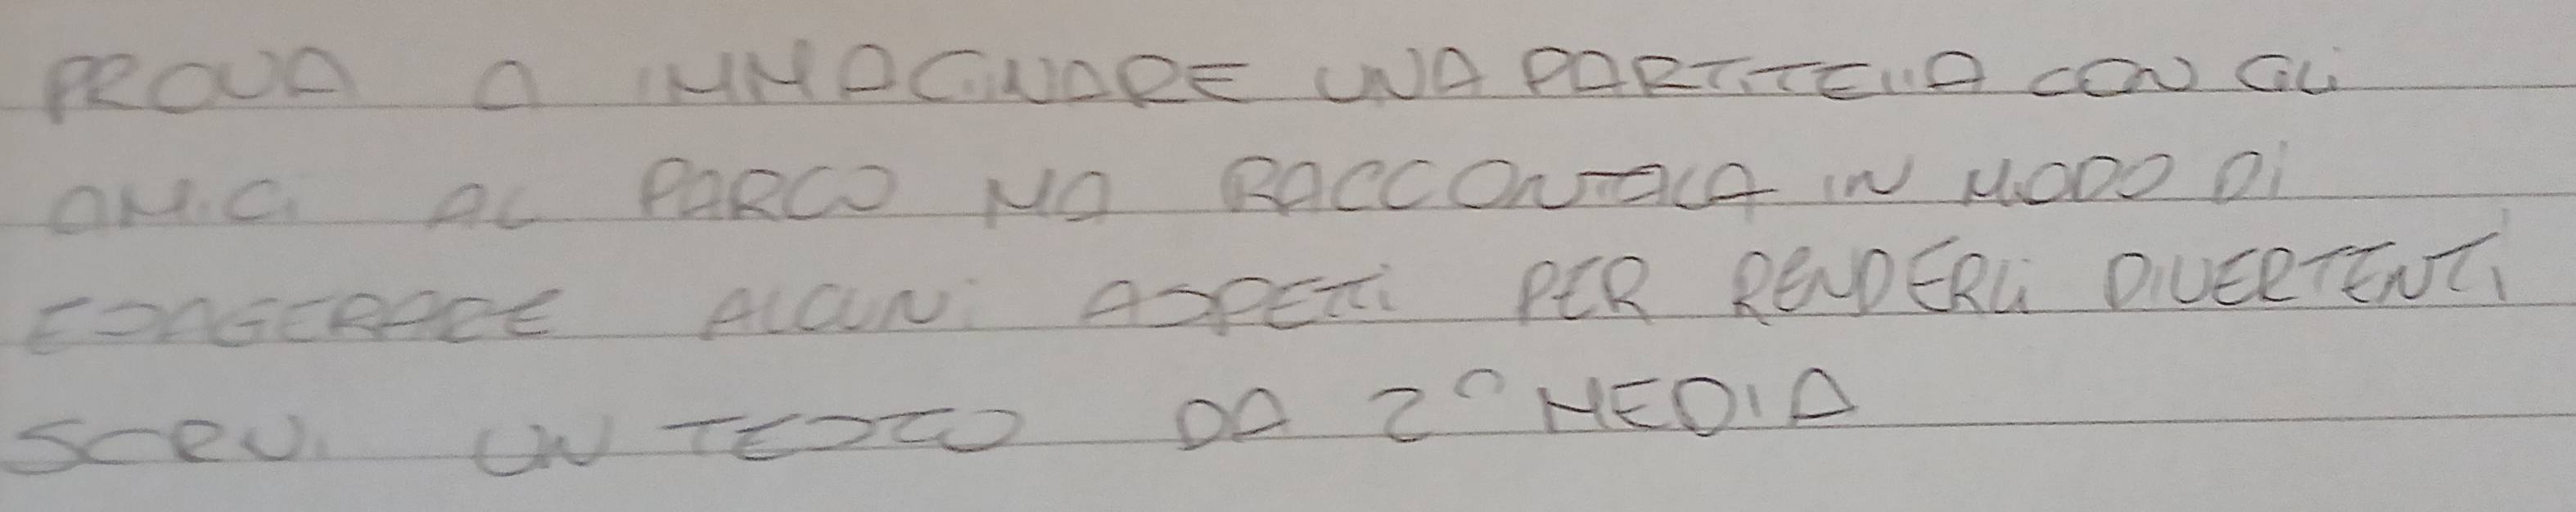 PROVA A IMMAGINARE UNA PARTITELLA CON GLI
AMICI AL PARCO MA RACCONTALA IN MODO DI
ESAGERARE ALCUNI ASPETTI PER RENDERLI DIVERTENTI
SCRVI UN TESTO DA 2° MEDIA